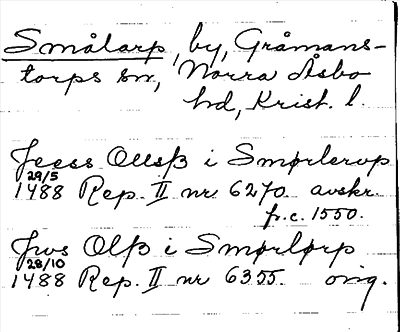 Smålarp, by, Gråmans-
torps sn, Norra Åsbo
hd, Krist. l.
Jeess Ollsß i Smørlerup
29/5
1488 Rep. II nr 6270. avskr.
fr. c. 1550.
Jws Olß i Smørlørp
28/10
1488 Rep. II nr 6355. orig.